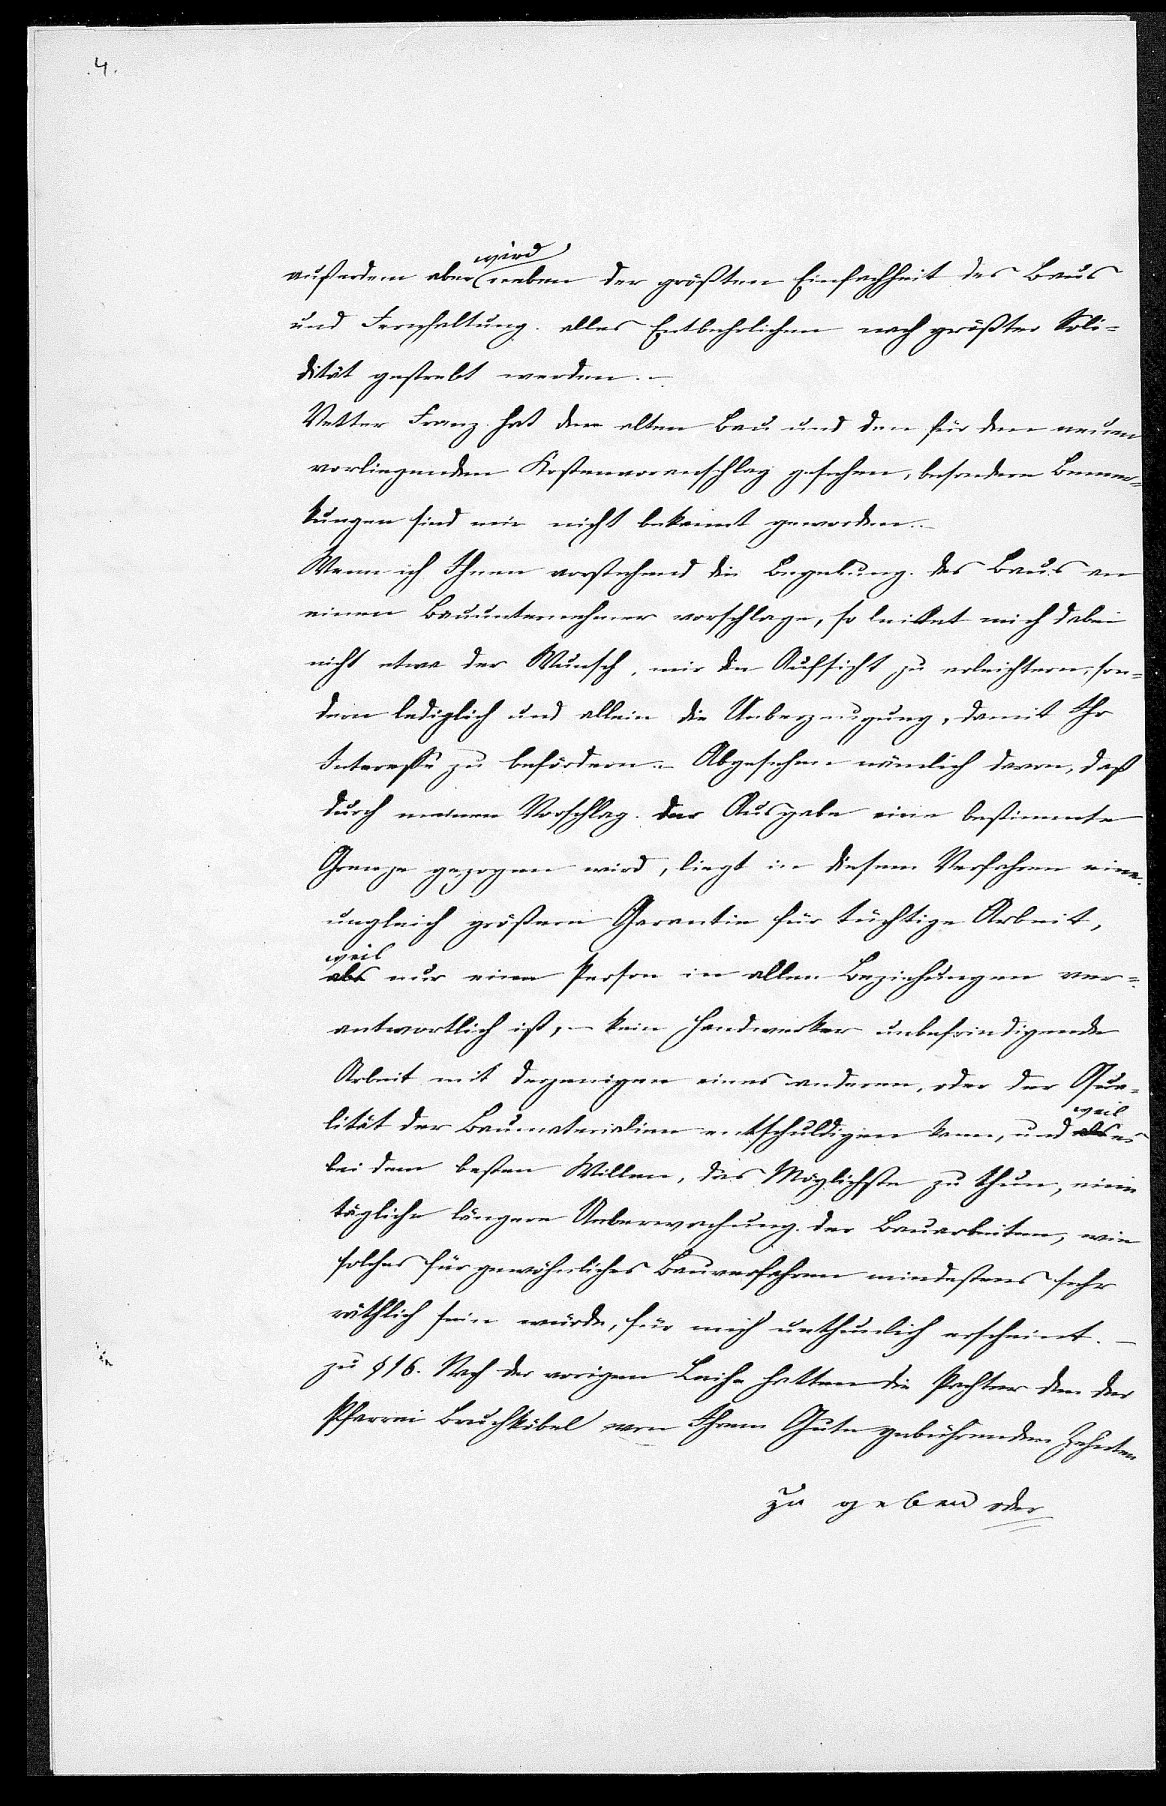 4.
wird
außerdem aber neben der größten Einfachheit des Baus
und Fernhaltung alles Entbehrlichen nach größter Soli-
dität gestrebt werden.–
Vetter Franz hat den alten Bau und den für den neuen
vorliegenden Kostenvoranschlag gesehen, besondere Bemer-
kungen sind mir nicht bekannt geworden.–
Wenn ich Ihnen vorstehend die Begebung des Baus an
einen Bauunternehmer vorschlage, so leitet mich dabei
nicht etwa der Wunsch, mir die Aufsicht zu erleichtern, son-
dern lediglich und allein die Ueberzeugung, damit Ihr
Interesse zu befördern.– Abgesehen nämlich davon, daß
durch meinen Vorschlag der Ausgabe eine bestimmte
Grenze gezogen wird, liegt in diesem Verfahren eine
ungleich größere Garantie für tüchtige Arbeit,
weil
als nur eine Person in allen Beziehungen ver-
antwortlich ist,– kein Handwerker unbefriedigende
Arbeit mit derjenigen eines anderen, oder der Qua-
weil
lität der Baumaterialien entschuldigen kann, und als es
bei dem besten Willen, das Möglichste zu thun, eine
tägliche längere Ueberwachung der Bauarbeiten, wie
solches für gewöhnliches Bauverfahren mindestens sehr
räthlich sein würde, für mich unthunlich erscheint.–
zu § 16. Nach der vorigen Leihe hatten die Pachter den der
Pfarrei Bruchköbel von Ihrem Gute gebührenden Zehnten
zu geben oder